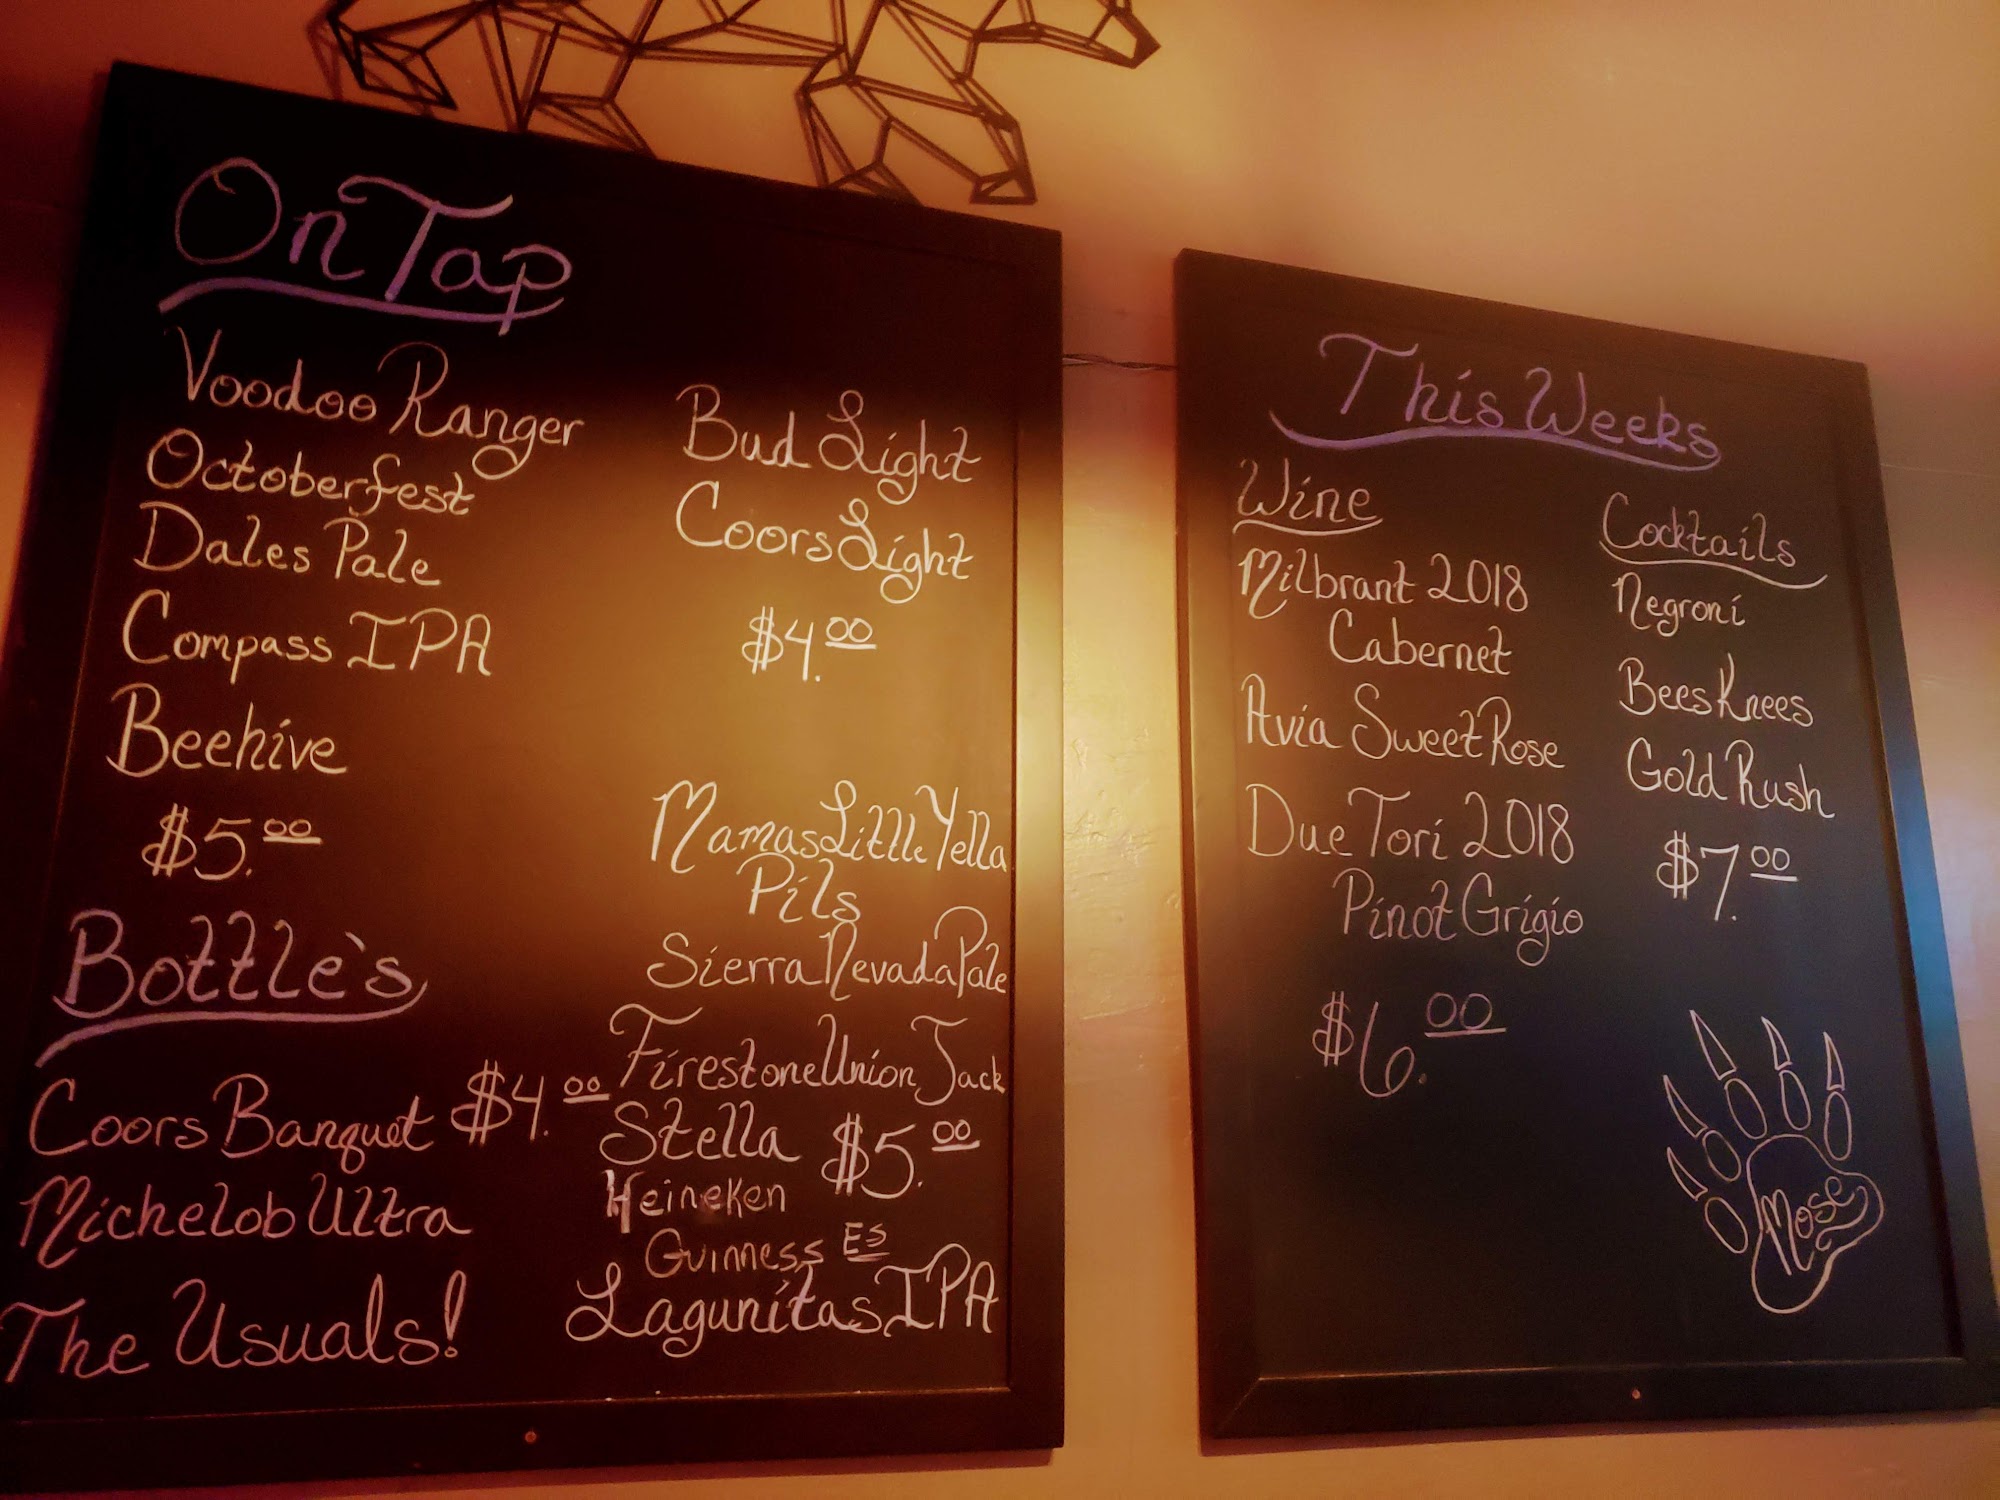 On Tap
Voodoo Ranger
Octoberfest
Dales Pale
Compass IPA
Beehive
$5.00
Bud Light
Coors Light
$4.00
Bottle's
Coors Banquet $4.00
Michelob Ultra
The Usuals!
Mamas Little Yella
Pils
Sierra Nevada Pale
Firestone Union Jack
Stella $5.00
Heineken
Guinness ES
Lagunitas IPA
This Weeks
Wine
Milbrant 2018
Cabernet
Avia Sweet Rose
Due Tori 2018
Pinot Grigio
$6.00
Cocktails
Negroni
Bees Knees
Gold Rush
$7.00
Mose